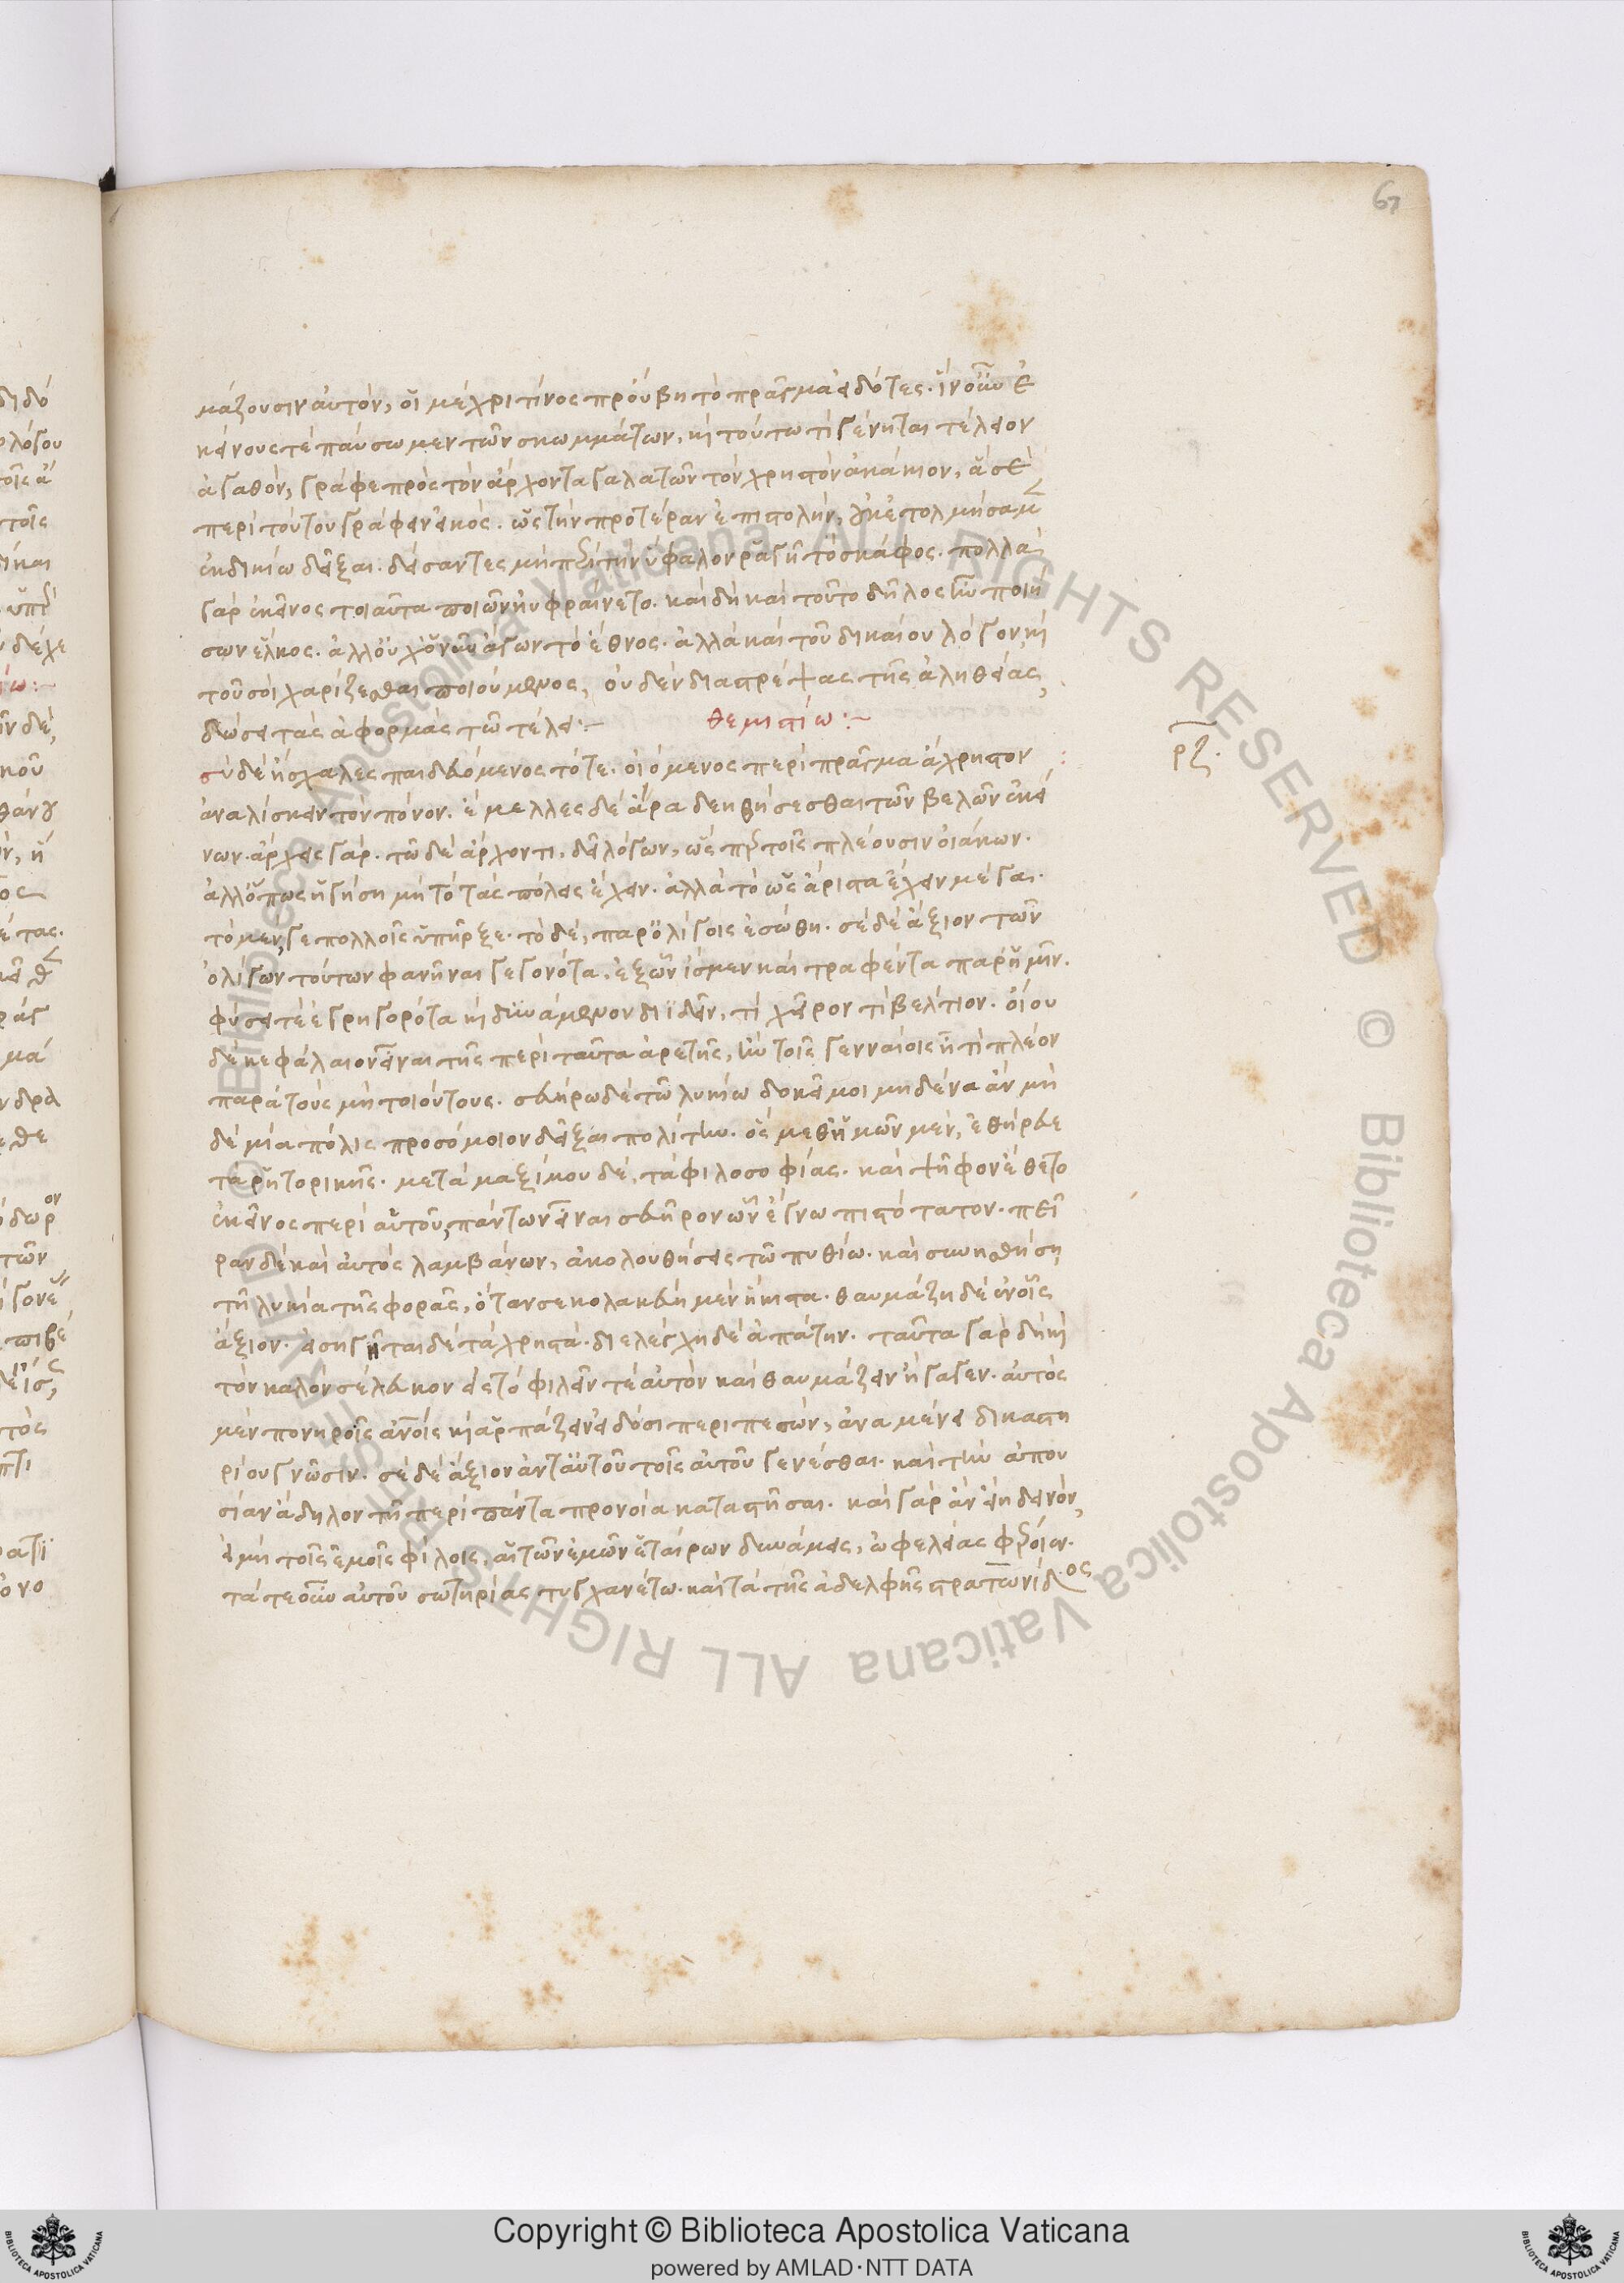 67
μάζουσιν αὐτὸν, οἳ μέχρι τίνος προὔβη τὸ πρᾶγμα εἰδότες. ἵν' οὖν ἐ
κείνους τὲ παύσωμεν τῶν σκωμμάτων, καὶ τούτω τὶ γένηται τέλειον
ἀγαθὸν, γράφε πρὸς τὸν ἄρχοντα γαλατῶν τὸν χρηστὸν ἀκάκιον, ἃ σὲ
περὶ τούτου γράφειν εἰκός. ὡς τὴν προτέραν ἐπιστολὴν, οὐκ ἐτολμήσαμεν
ἐκδικίω δεῖξαι. δείσαντες μὴ περὶ τὴν ὕφαλον ῥαγῆ τὸ σκάφος. πολλὰ
γὰρ ἐκεῖνος τοιαῦτα ποιῶν ηὐφραίνετο. καὶ δὴ καὶ τοῦτο δῆλος ἦν ποιή
σων ἕλκος. ἀλλ' οὐχ ὁ νῦν ἄγων τὸ ἔθνος. ἀλλὰ καὶ τοῦ δικαίου λόγον καὶ
τοῦ σοὶ χαρίζεσθαι ποιούμενος, οὐδὲν διαστρέψας τῆς ἀληθείας,
δώσει τὰς ἀφορμὰς τῶ τέλει:~ θεμιστίω:~
ρζ.
σὺ δὲ ἤσχαλες παιδευόμενος τότε. οἰόμενος περὶ πρᾶγμα ἄχρηστον
ἀναλίσκειν τὸν πόνον. ἔμελλες δὲ ἄρα δεηθήσεσθαι τῶν βελῶν ἐκεί
νων. ἄρχεις γάρ. τῶ δὲ ἄρχοντι, δεῖ λόγων, ὥσπερ τοῖς πλέουσιν οἰάκων.
ἀλλ' ὅπως ἡγήση μὴ τὸ τὰς πόλεις ἔχειν. ἀλλὰ τὸ ὡς ἄριστα ἔχειν μέγα.
τὸ μέν γε πολλοῖς ὑπῆρξε. τὸ δὲ, παρ' ὀλίγοις ἐσώθη. σὲ δὲ ἄξιον τῶν
ὀλίγων τούτων φανῆναι γεγονότα, ἐξ ὧν ἴσμεν καὶ τραφέντα παρ' ἡμῖν.
φύσει τὲ ἐγρηγορότα καὶ δυνάμενον διϊδεῖν, τί χεῖρον τί βέλτιον. οἵου
δὲ κεφάλαιον εἶναι τῆς περὶ ταῦτα ἀρετῆς, ἢν τοῖς γενναίοις ᾖ τὶ πλέον
παρὰ τοὺς μὴ τοιούτους. σευήρω δὲ τῶ λυκίω δοκεῖ μοι μηδένα ἂν μη
δὲ μία πόλις προσόμοιον δεῖξαι πολίτην. ὃς μεθ' ἡμῶν μὲν, ἐθήρευε
τὰ ῥητορικῆς. μετὰ μαξίμου δὲ, τὰ φιλοσοφίας. καὶ ψῆφον ἔθετο
ἐκεῖνος περὶ αὐτοῦ, πάντων εἶναι σευῆρον ὧν ἔγνω πιστότατον. πεῖ
ραν δὲ καὶ αὐτὸς λαμβάνων, ἀκολουθήσεις τῶ πυθίω. καὶ συνησθήση
τῆ λυκία τῆς φορᾶς, ὅταν σε κολακεύη μὲν ἥκιστα. θαυμάζη δὲ ἐν οἷς
ἄξιον. εἰσηγῆται δὲ τὰ χρηστά. διελέγχη δὲ ἀπάτην. ταῦτα γὰρ δὴ καὶ
τὸν καλὸν σέλευκον εἰς τὸ φιλεῖν τὲ αὐτὸν καὶ θαυμάζειν ἤγαγεν. αὐτὸς
μὲν πονηροῖς ἀνοῖς καὶ ἁρπάζειν εἰδόσι περιπεσὼν, ἀναμένει δικαστη
ρίου γνῶσιν. σὲ δὲ ἄξιον ἀντ' αὐτοῦ τοῖς αὐτοῦ γενέσθαι. καὶ τὴν ἀπου
σίαν ἄδηλον τῆ περὶ πάντα προνοία καταστῆσαι. καὶ γὰρ ἂν εἴη δεινὸν,
εἰ μὴ τοῖς ἐμοῖς φίλοις, αἱ τῶν ἐμῶν ἑταίρων δυνάμεις, ὠφελείας φέροιεν.
τά τε οὖν αὐτοῦ σωτηρίας τυγχανέτω. καὶ τὰ τῆς ἀδελφῆς στρατωνίδος